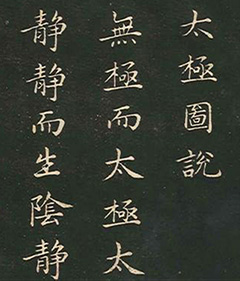 太極圖說
無極而太極太
静静而生陰静